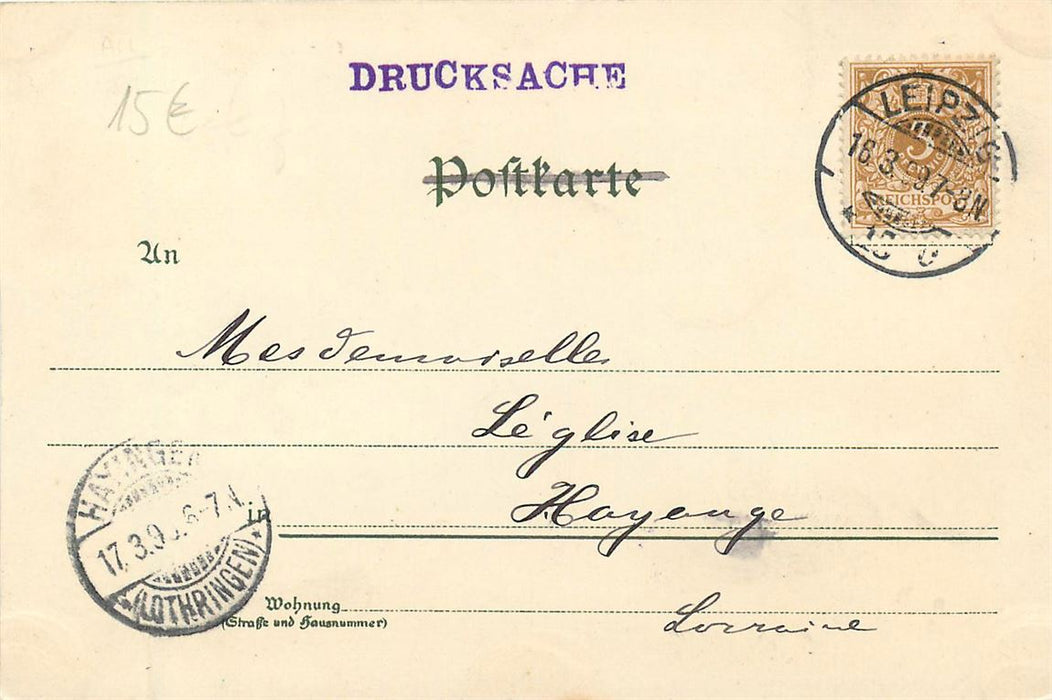 DRUCKSACHE
15€
Postkarte
LEIPZIG
3
REICHSPOST
7-8N
An
Mesdemoiselles
Léglise
HAYINGEN
17.3.9
6-7N.
(LOTHRINGEN)
in Hayange
Wohnung
(Straße und Hausnummer)
Lorraine